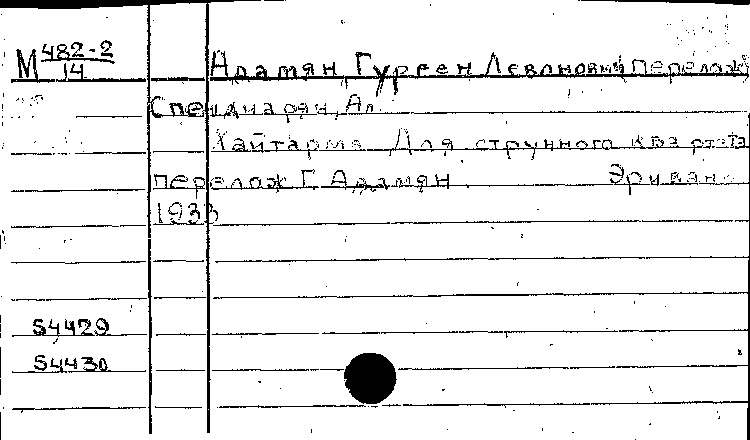 М 482-2/14 Адамян, Гурген Левонович (перелож)
Спендиарян, Ал.
Хайтарма Для струнного квартета
перелож Г. Адамян. Эривань
1933
54429
54430